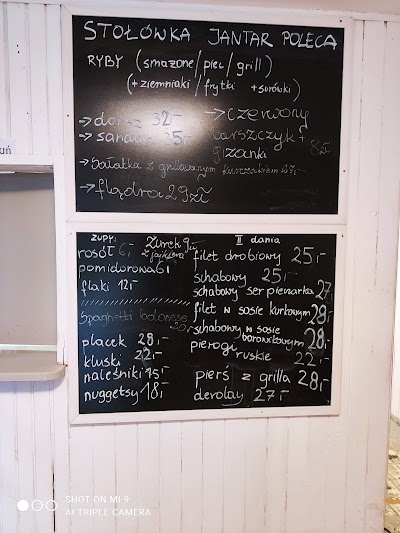 STOŁÓWKA JANTAR POLECA
RYBY (smażone/piec/grill)
(+ziemniaki/frytki +surówki)
→ dorsz 32,-
→ sandacz 35,-
→ czerwony
barszczyk +
8,5
→ sałatka z grillowanym kurczakiem
→ flądra 29zł
ZUPY:
rosół 6,-
pomidorowa 6,-
flaki 12,-
Żurek 9,-
z jajkiem
Spaghetti bolonese
20,-
placek 28,-
kluski 22,-
naleśniki 15,-
nuggetsy 18,-
II dania
filet drobiowy 25,-
schabowy 25,-
schabowy ser pieczarka 27,-
filet w sosie kurkowym 29,-
schabowy w sosie
borowikowym 28,-
pierogi
ruskie 22,-
pierś z grilla 28,-
devolay 27,-
SHOT ON MI 9
AI TRIPLE CAMERA